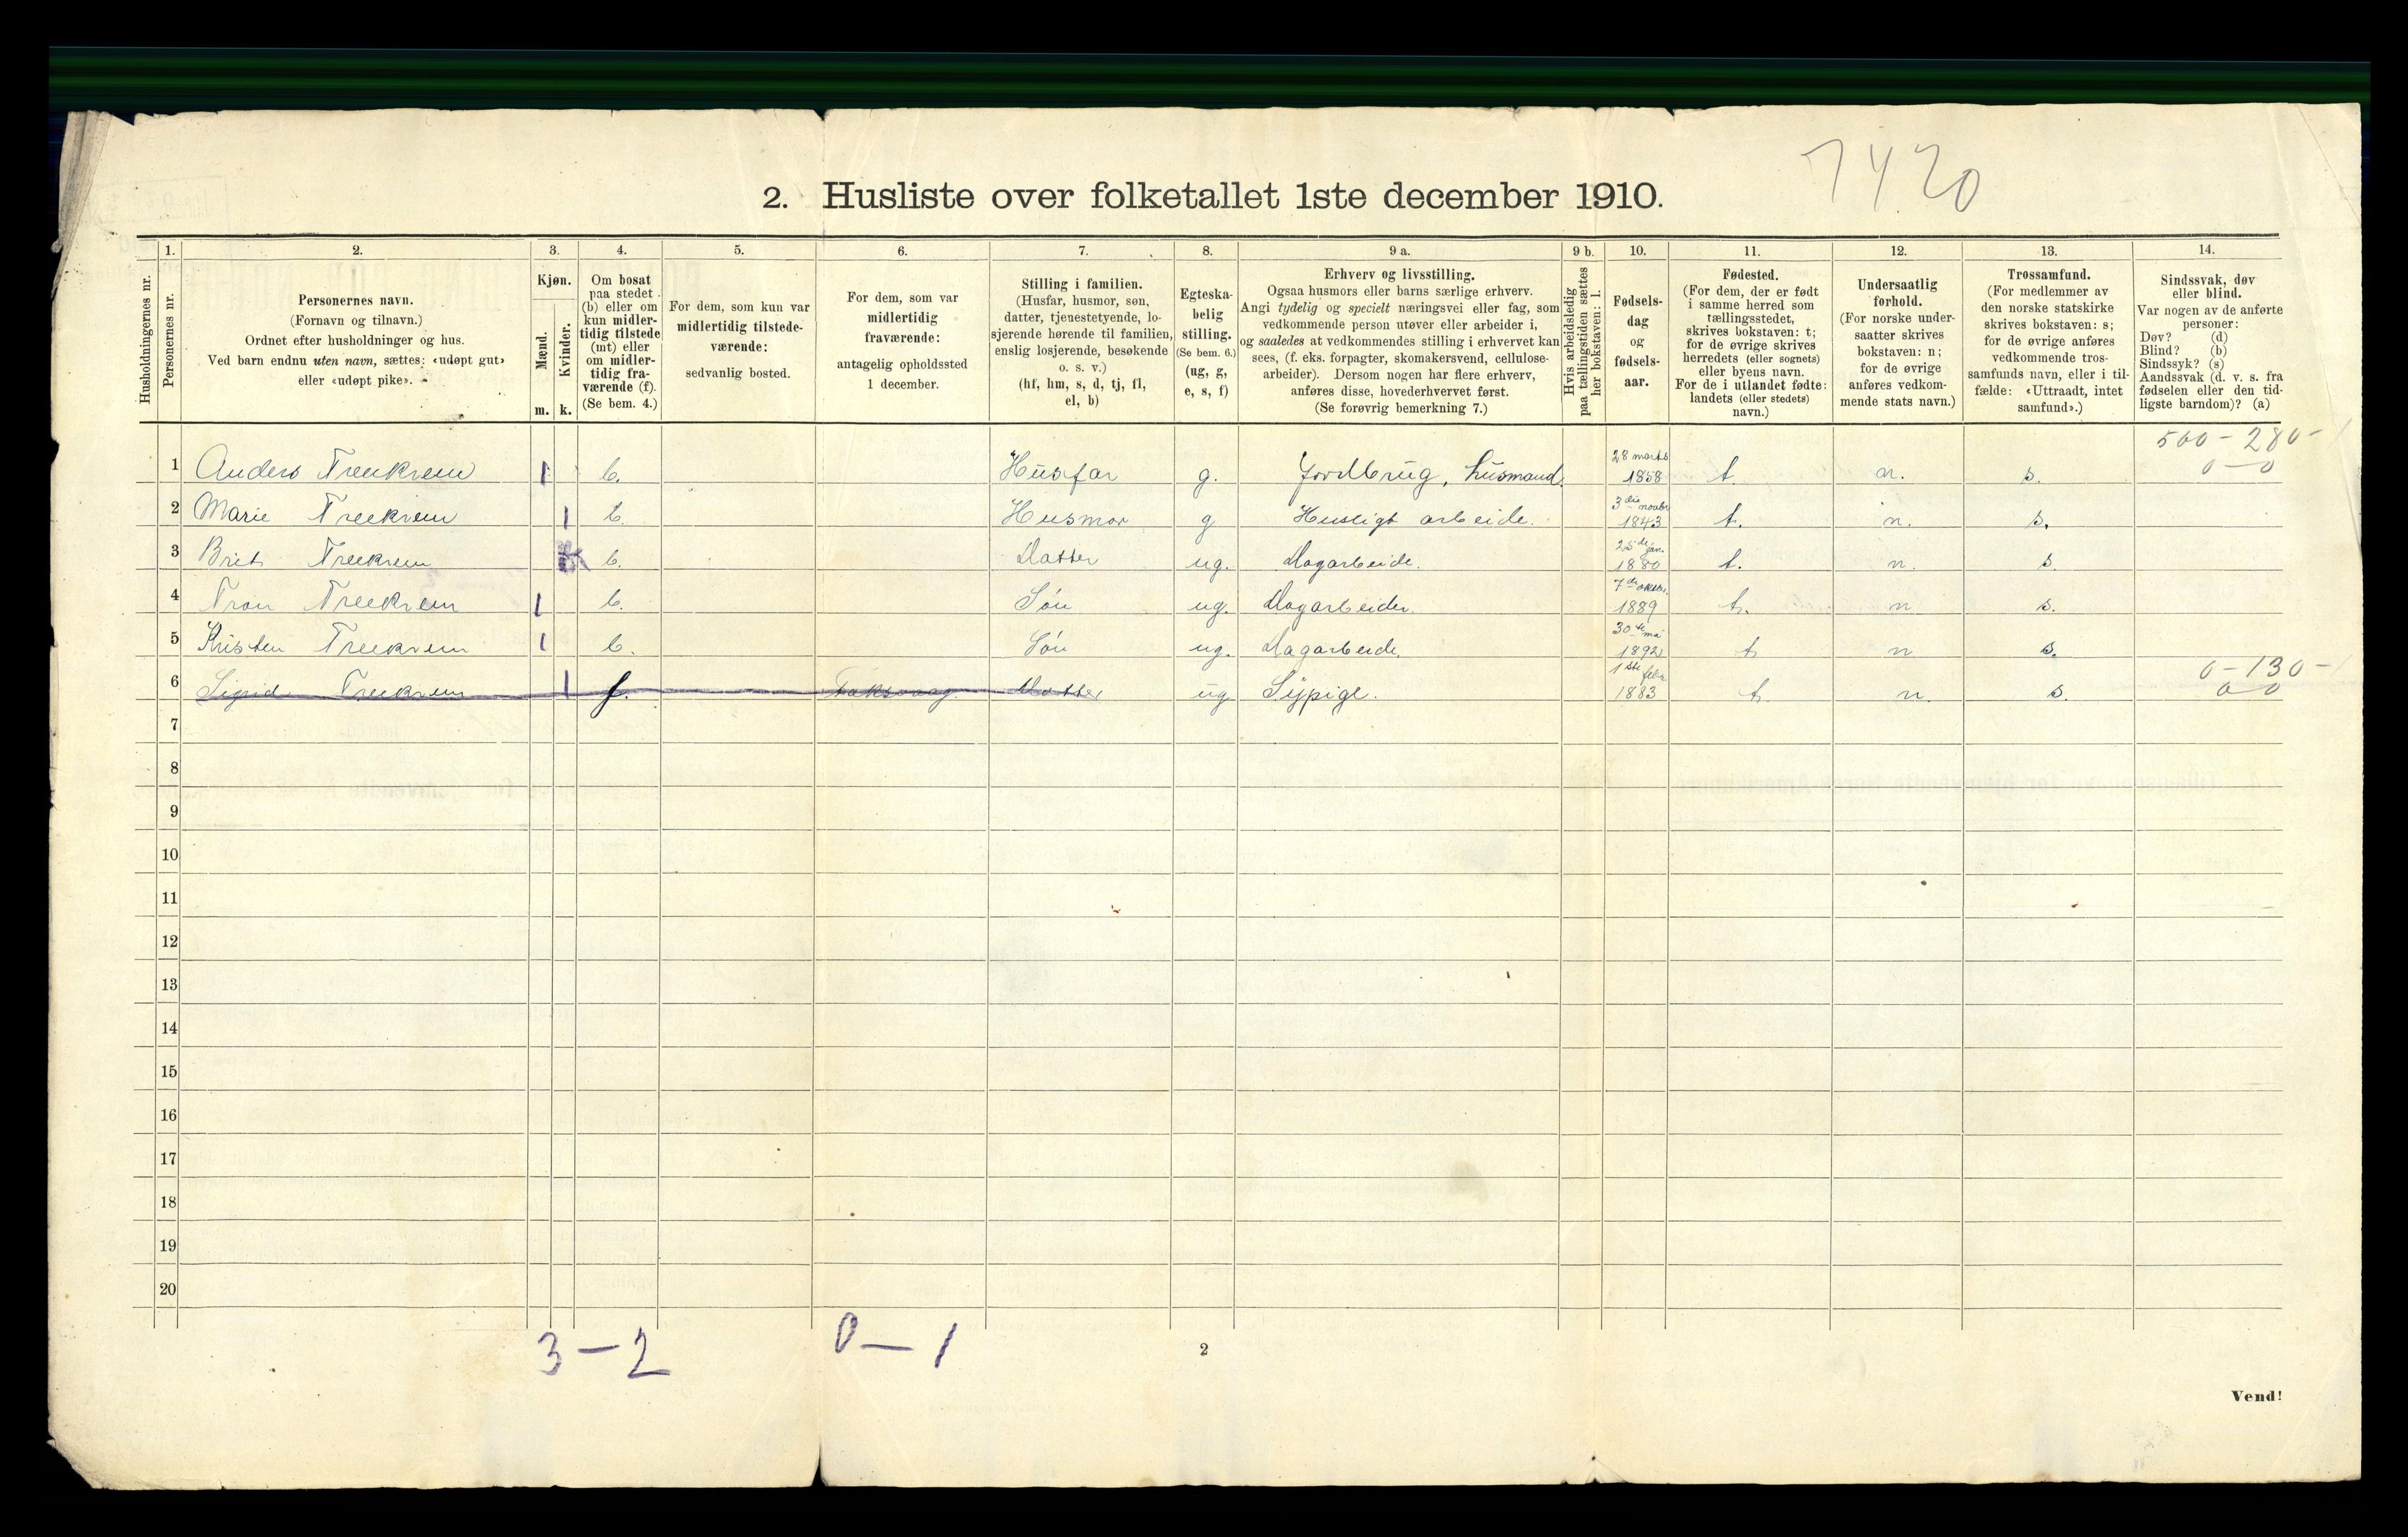 7420
2. Husliste over folketallet 1ste december 1910.
1. 2. 3. 4. 5. 6. 7. 8. 9 a. 9 b. 10. 11. 12. 13. 14.
Husholdningernes nr.
Personernes nr.
Personernes navn.
(Fornavn og tilnavn.)
Ordnet efter husholdninger og hus.
Ved barn endnu uten navn, sættes: «udøpt gut»
eller «udøpt pike».
Kjøn.
Mænd.
Kvinder.
m. k.
Om bosat
paa stedet
(b) eller om
kun midler-
tidig tilstede
(mt) eller
om midler-
tidig fra-
værende (f).
(Se bem. 4.)
For dem, som kun var
midlertidig tilstede-
værende:
sedvanlig bosted.
For dem, som var
midlertidig
fraværende:
antagelig opholdssted
1 december.
Stilling i familien.
(Husfar, husmor, søn,
datter, tjenestetyende, lo-
sjerende hørende til familien,
enslig losjerende, besøkende
o. s. v.)
(hf, hm, s, d, tj, fl,
el, b)
Egteska-
belig
stilling.
(Se bem. 6.)
(ug, g,
e, s, f)
Erhverv og livsstilling.
Ogsaa husmors eller barns særlige erhverv.
Angi tydelig og specielt næringsvei eller fag, som
vedkommende person utøver eller arbeider i,
og saaledes at vedkommendes stilling i erhvervet kan
sees, (f. eks. forpagter, skomakersvend, cellulose-
arbeider). Dersom nogen har flere erhverv,
anføres disse, hovederhvervet først.
(Se forøvrig bemerkning 7.)
Hvis arbeidsledig
paa tællingstiden sættes
her bokstaven: l.
Fødsels-
dag
og
fødsels-
aar.
Fødested.
(For dem, der er født
i samme herred som
tællingsstedet,
skrives bokstaven: t;
for de øvrige skrives
herredets (eller sognets)
eller byens navn.
For de i utlandet fødte:
landets (eller stedets)
navn.)
Undersaatlig
forhold.
(For norske under-
saatter skrives
bokstaven: n;
for de øvrige
anføres vedkom-
mende stats navn.)
Trossamfund.
(For medlemmer av
den norske statskirke
skrives bokstaven: s;
for de øvrige anføres
vedkommende tros-
samfunds navn, eller i til-
fælde: «Uttraadt, intet
samfund».)
Sindssvak, døv
eller blind.
Var nogen av de anførte
personer:
Døv? (d)
Blind? (b)
Sindssyk? (s)
Aandssvak (d. v. s. fra
fødselen eller den tid-
ligste barndom)? (a)
500 - 280 -
0 - 0
1 Anders Treekrem 1 b. Husfar g. Jordbrug, husmand. 28 marts 1858 t. n. s.
2 Marie Treekrem 1 b. Husmor g Husligt arbeide. 3die novbr 1843 t. n. s.
3 Brit Treekrem b. Datter ug. Dagarbeide. 25de jan. 1880 t. n. s.
4 Tron Treekrem 1 b. Søn ug. Dagarbeider. 7de oktbr. 1889 t. n s.
5 Kristen Treekrem 1 b. Søn ug. Dagarbeide. 30te mai 1892 t n s.
0 - 130 -
6 Sigrid Treekrem 1 f. Datter ug Sypige. 1ste febr 1883 t. n. s. 0 - 0
7
8
9
10
11
12
13
14
15
16
17
18
19
20
3 - 2 0 - 1
2
Vend!